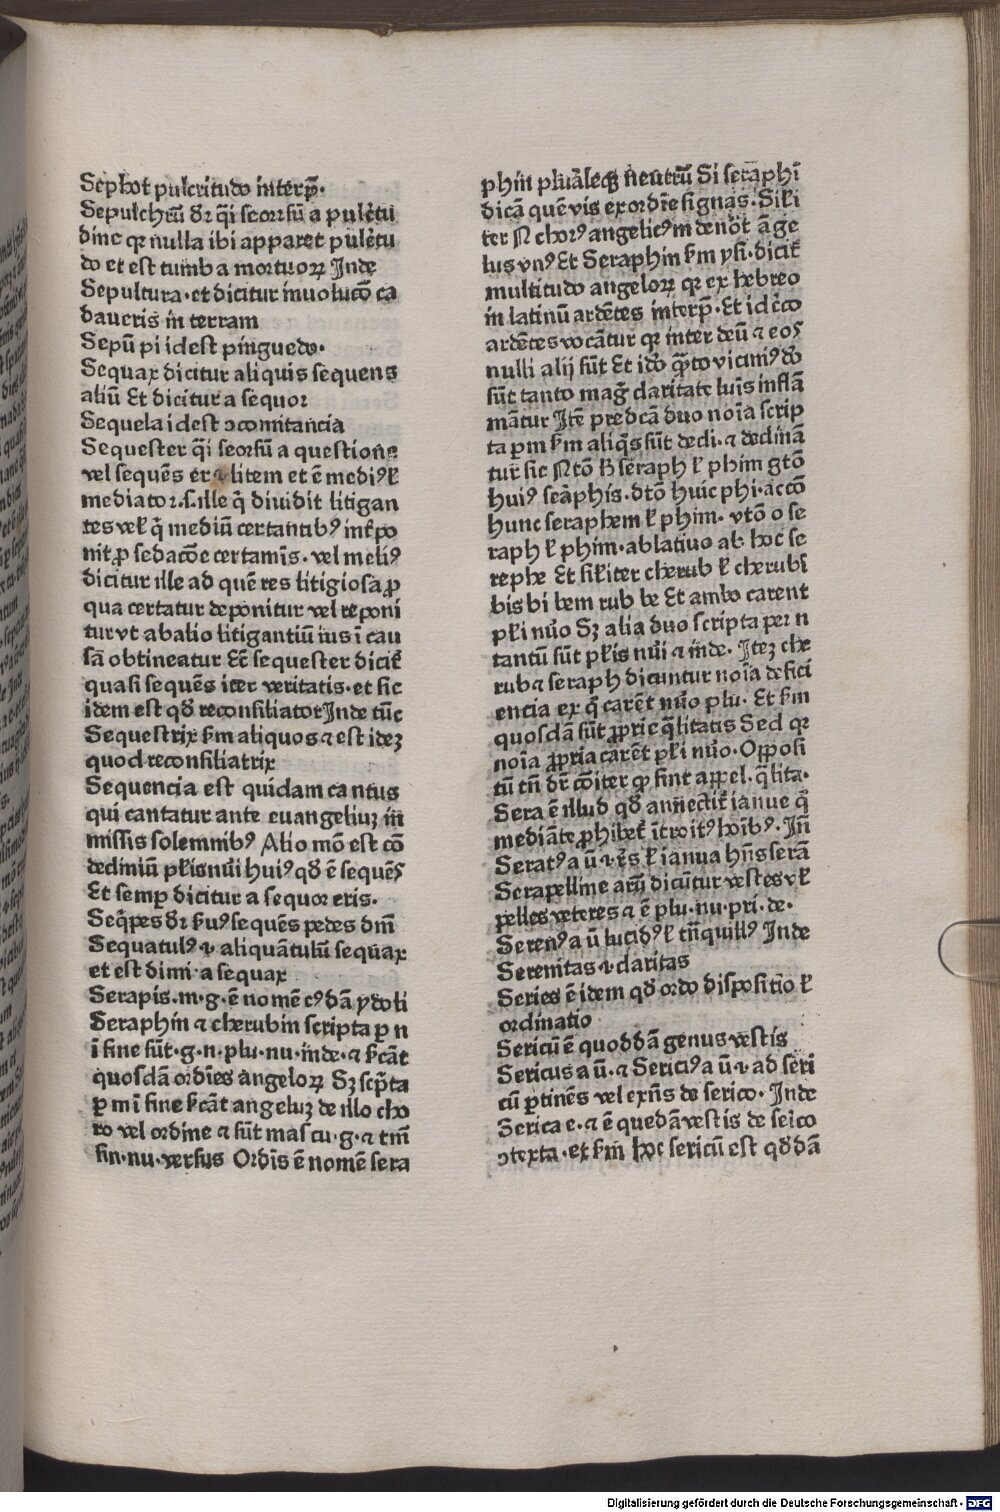 Sephot pulcritudo interp̄.
Sepulchrū dr̄ q̄i seorsū a pulc̄tu
dine qꝛ nulla ibi apparet pulc̄tu
do et est tumba mortuoꝝ Inde
Sepultura·et dicitur inuolucō ca
daueris in terram
Sepū pi idest pinguedo·
Sequax dicitur aliquis sequens
aliū Et dicitur a sequor
Sequela idest ↄcomitancia
Sequester q̄i seorsū a questione
vel sequēs er ꝛ litem et ē mediꝰ ł
mediator.s.ille q̄ diuidit litigan
tes veł q̄ mediū certantibꝰ inf̄po
nit ꝓ sedacōe certamīs· vel meliꝰ
dicitur ille ad quē res litigiosa ꝓ
qua certatur deponitur vel reponi
tur vt ab alio litigantiū ius ī cau
sā obtineatur Et̄ sequester dicit̄
quasi sequēs iter veritatis·et sic
idem est qd̄ reconsiliator Inde tūc
Sequestrix ẜm aliquos ꝛ est ideꝫ
quod reconsiliatrix
Sequencia est quidam cantus
qui cantatur ante euangeliuꝫ in
missis solemnibꝰ Alio mō est cō
decliniū pl̄is nūi huiꝰ qd̄ ē sequēs
Et semꝑ dicitur a sequor eris·
Seq̄pes dr̄ ẜuꝰ sequēs pedes dn̄m
Sequatulꝰ ꝛ aliquātulū sequax
et est dimi·a sequax
Serapis·m·g·ē nomē cꝰdā ydoli
Seraphin ꝛ cherubin scripta ꝑ n
ī fine sūt·g·n·plu·nu·inde·ꝛ ẜcāt
quosdā ordīes angeloꝝ Sꝫ sc̄pta
ꝑ m ī fine ẜcāt angeluꝫ de illo cho
ro vel ordine ꝛ sūt mascu·g·ꝛ tm̄
sin·nu·versus Ordīs ē nomē sera
phin plurāleqꝫ neutrū Si seraphī
dicā quēvis ex ordīe signas·Siłi
ter N chorꝰ angelicꝰ m denōt āge
lus vnꝰ Et Seraphin ẜm ysi·dicit̄
multitudo angeloꝝ qꝛ ex hebreo
in latinū ardētes interp̄·Et idc̄co
ardētes vocātur qꝛ inter deū ꝛ eos
nulli alij sūt Et idō q̄to viciniꝰ dō
sūt tanto maḡ claritate luīs inflā
mātur Itē predcā duo noīa scrip
ta ꝑ m ẜm aliq̄s sūt decli·ꝛ declinā
tur sic Ntō h̄ seraph ł phim gtō
huiꝰ seāphis·dtō huic phi·accō
hunc seraphem ł phim· vtō o se
raph ł phim·ablatiuo ab hoc se
rephe Et siłiter cherub ł cherubī
bis bi bem rub be Et ambo carent
płi nūo Sꝫ alia duo scripta per n
tantū sūt płis nūi ꝛ inde· Iteꝫ che
rub ꝛ seraph dicuntur noīa defici
encia ex q̄ carēt nūo plu· Et ẜm
quosdā sūt ꝓprie q̄litatis Sed qꝛ
noīa ꝓpria carēt płi nūo·Opposi
tū tn̄ dr̄ cōiter ꝙ sint appel·q̄lita·
Sera ē illud qd̄ annectit̄ ianue q̄
mediāte ꝓhibet̄ ītroitꝰ hoībꝰ· In̄
Seratꝰ a ū·ꝛ·r̄s ł ianua hn̄s serā
Serapelline arū dicūtur vestes vł
pelles veteres ꝛ ē plu·nu·pri·de·
Serenꝰ a ū lucidꝰ ł tn̄quillꝰ Inde
Serenitas ꝛ claritas
Series ē idem qd̄ ordo dispositio ł
ordinatio
Sericū ē quoddā genus vestis
Sericus a ū·ꝛ Sericiꝰ a ū·ꝛ·ad seri
cū ꝑtinēs vel exn̄s de serico·Inde
Serica e·ꝛ ē quedā vestis de seico
ↄtexta·et ẜm hoc sericū est qd̄dā
Digitalisierung gefördert durch die Deutsche Forschungsgemeinschaft - DFG